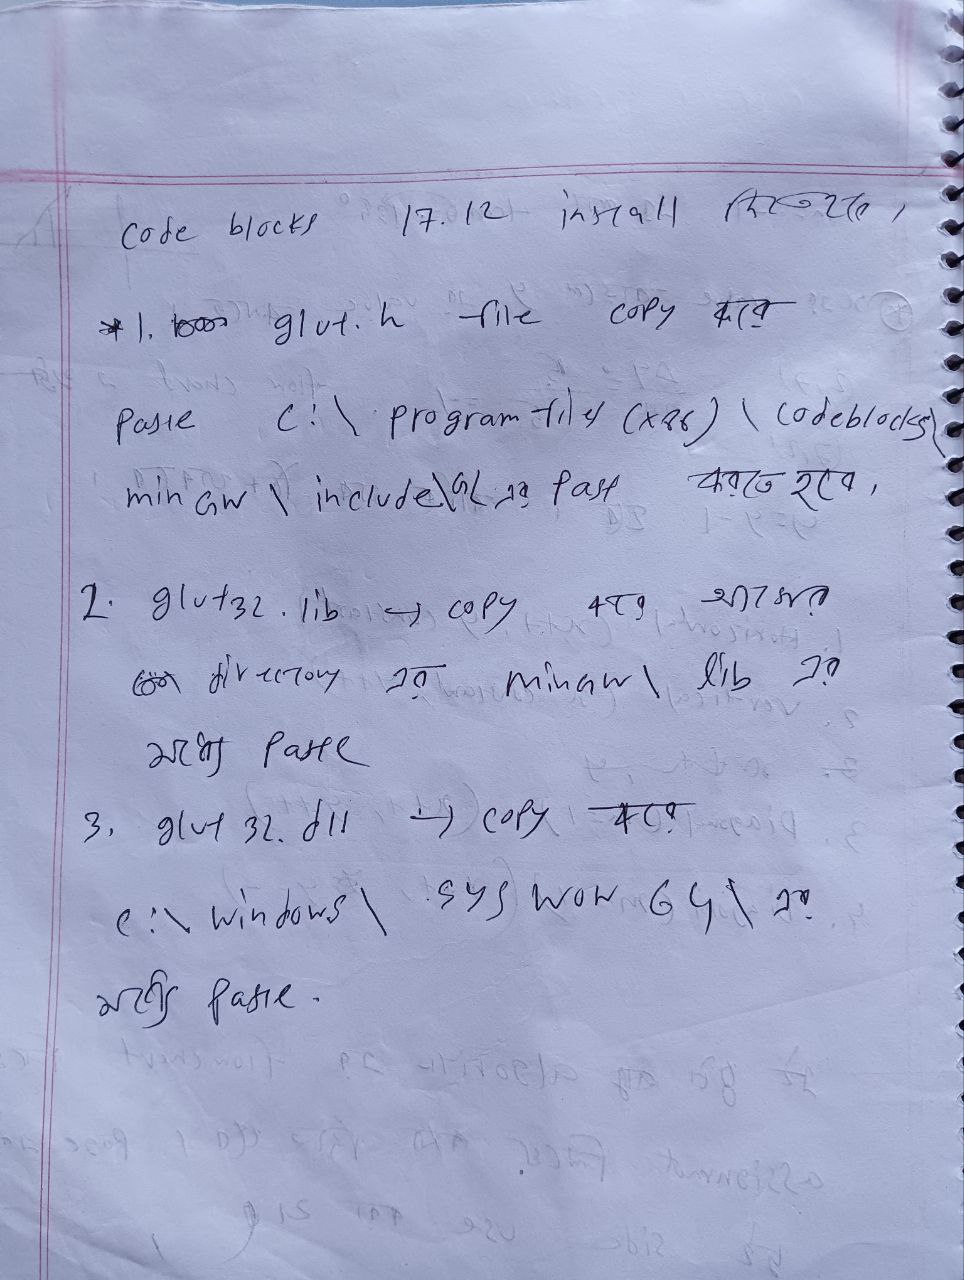 code blocks 17.12 install
* 1. glut.h file copy করে
paste C:\ program files (x86) \ codeblocks\
min GW \ include\GL এর past করতে হবে,
2. glut32. lib → copy করে আগের
directory এর minGW \ lib এর
মধ্যে paste
3. glut 32. dll → copy করে
c:\ windows \ sys WOW 64\ এর
মধ্যে paste.